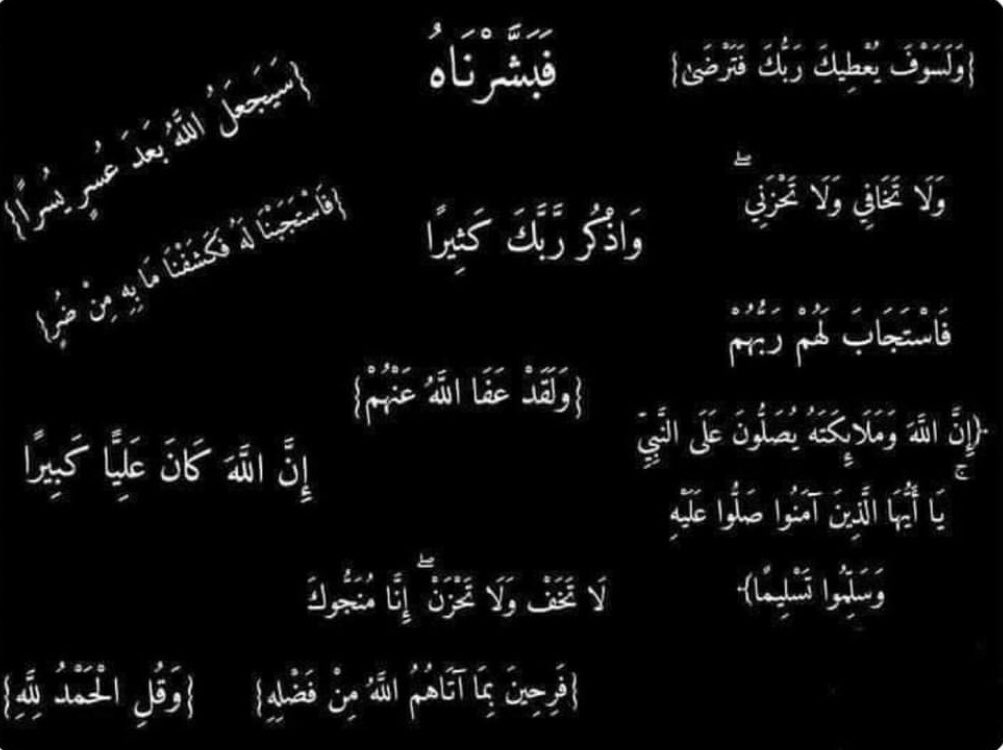 فَبَشَّرْنَاهُ
{وَلَسَوْفَ يُعْطِيكَ رَبُّكَ فَتَرْضَىٰ}
{سَيَجْعَلُ اللَّهُ بَعْدَ عُسْرٍ يُسْرًا}
وَلَا تَخَافِي وَلَا تَحْزَنِي ۖ
{فَاسْتَجَبْنَا لَهُ فَكَشَفْنَا مَا بِهِ مِنْ ضُرٍّ}
وَاذْكُر رَّبَّكَ كَثِيرًا
فَاسْتَجَابَ لَهُمْ رَبُّهُمْ
{وَلَقَدْ عَفَا اللَّهُ عَنْهُمْ}
﴿إِنَّ اللَّهَ وَمَلَائِكَتَهُ يُصَلُّونَ عَلَى النَّبِيِّ ۚ
يَا أَيُّهَا الَّذِينَ آمَنُوا صَلُّوا عَلَيْهِ
وَسَلِّمُوا تَسْلِيمًا﴾
إِنَّ اللَّهَ كَانَ عَلِيًّا كَبِيرًا
لَا تَخَفْ وَلَا تَحْزَنْ ۖ إِنَّا مُنَجُّوكَ
{فَرِحِينَ بِمَا آتَاهُمُ اللَّهُ مِنْ فَضْلِهِ}
{وَقُلِ الْحَمْدُ لِلَّهِ}